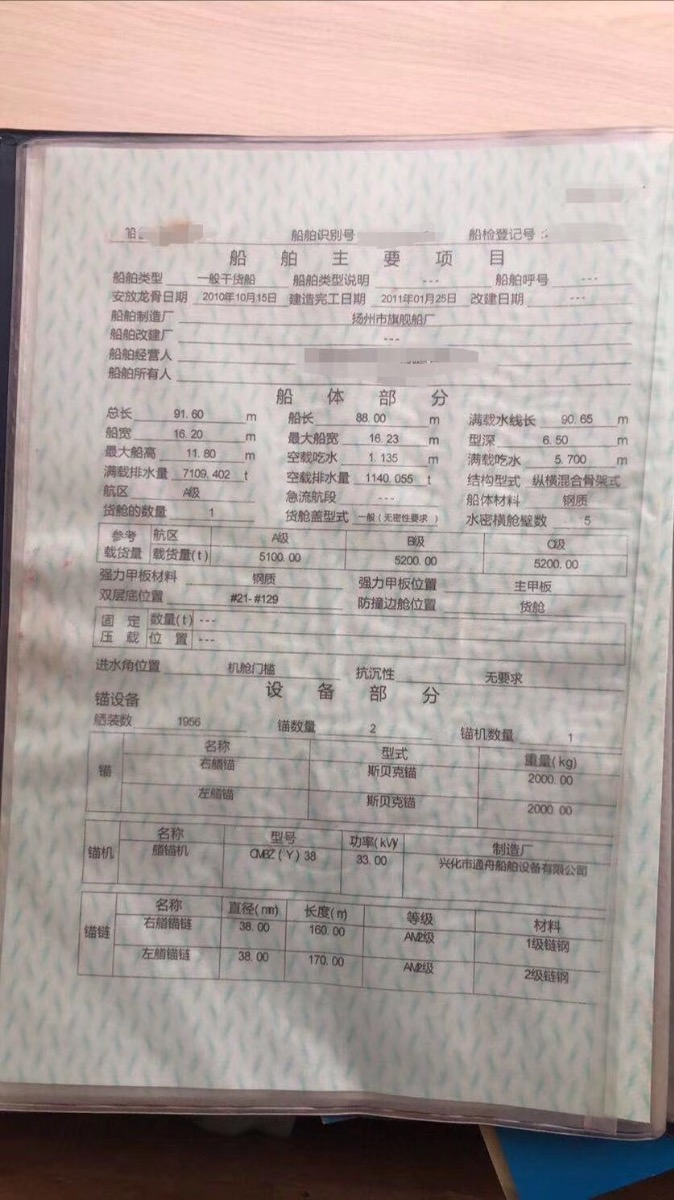 船舶识别号 船检登记号：
船舶主要项目
船舶类型 一般干货船 船舶类型说明 --- 船舶呼号
安放龙骨日期 2010年10月15日 建造完工日期 2011年01月25日 改建日期 ---
船舶制造厂 扬州市旗舰船厂
船舶改建厂 ---
船舶经营人
船舶所有人
船体部分
总长 91.60 m 船长 88.00 m 满载水线长 90.65 m
船宽 16.20 m 最大船宽 16.23 m 型深 6.50 m
最大船高 11.80 m 空载吃水 1.135 m 满载吃水 5.700 m
满载排水量 7109.402 t 空载排水量 1140.055 t 结构型式 纵横混合骨架式
航区 A级 急流航段 --- 船体材料 钢质
货舱的数量 1 货舱盖型式 一般（无密性要求） 水密横舱壁数 5
参考 航区 A级 B级 C级
载货量 载货量(t) 5100.00 5200.00 5200.00
强力甲板材料 钢质 强力甲板位置 主甲板
双层底位置 #21-#129 防撞边舱位置 货舱
固定 数量(t) ---
压载 位置 ---
进水角位置 机舱门槛 抗沉性 无要求
设备部分
锚设备
舾装数 1956 锚数量 2 锚机数量 1
名称 型式 重量(kg)
锚 右艏锚 斯贝克锚 2000.00
左艏锚 斯贝克锚 2000.00
名称 型号 功率(kW) 制造厂
锚机 艏锚机 CMBZ(·Y)38 33.00 兴化市通舟船舶设备有限公司
名称 直径(mm) 长度(m) 等级 材料
锚链 右艏锚链 38.00 160.00 AM2级 1级链钢
左艏锚链 38.00 170.00 AM2级 2级链钢